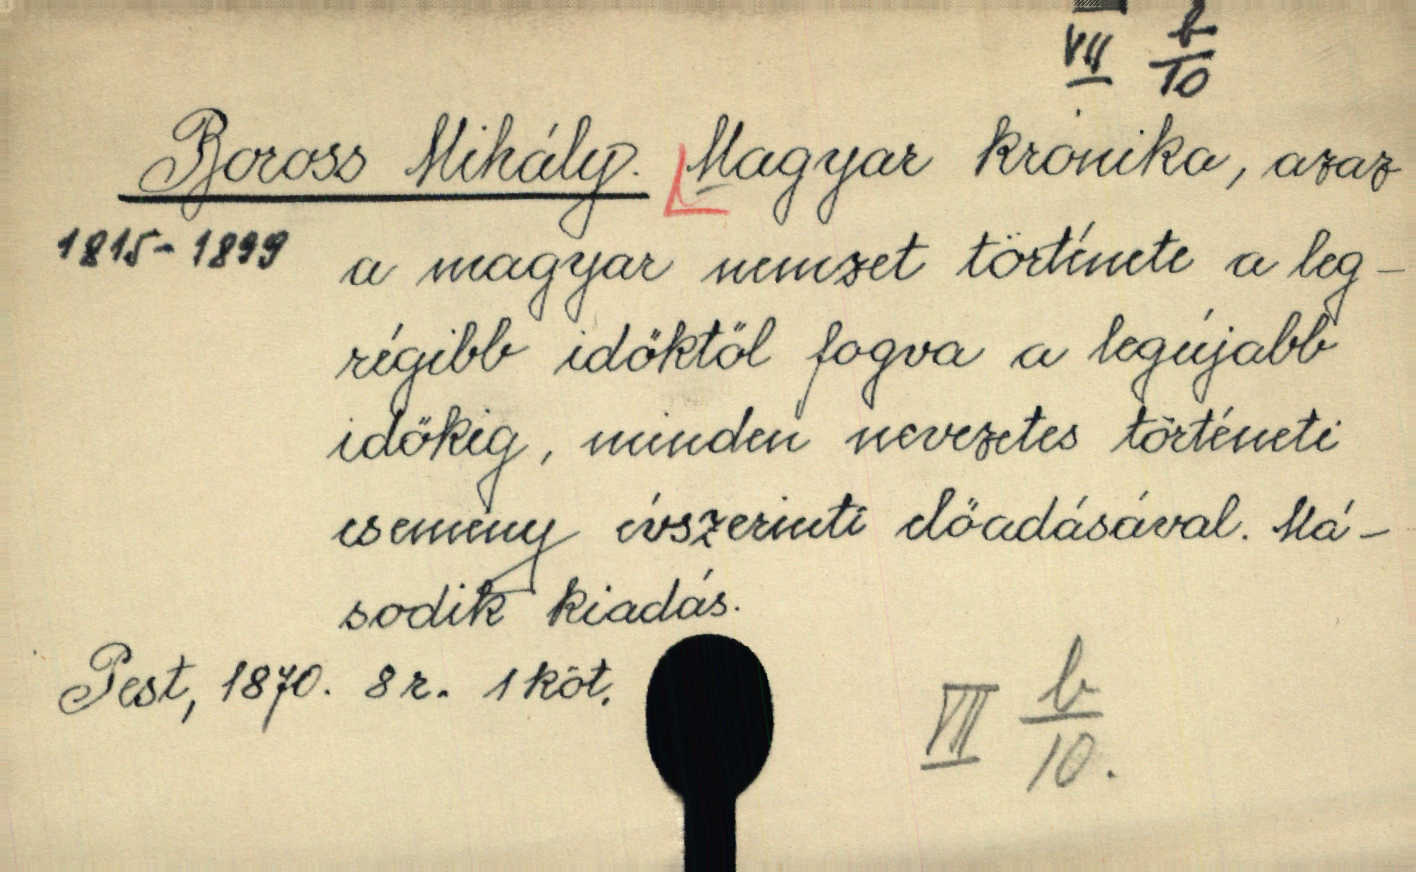 VII b/10
Boross Mihály. Magyar krónika, azaz
1815-1899
a magyar nemzet története a leg-
régibb időktől fogva a legújabb
időkig, minden nevezetes történeti
esemény évszerinti előadásával. Má-
sodik kiadás.
Pest, 1870. 8 r. 1 köt.
VII b/10.